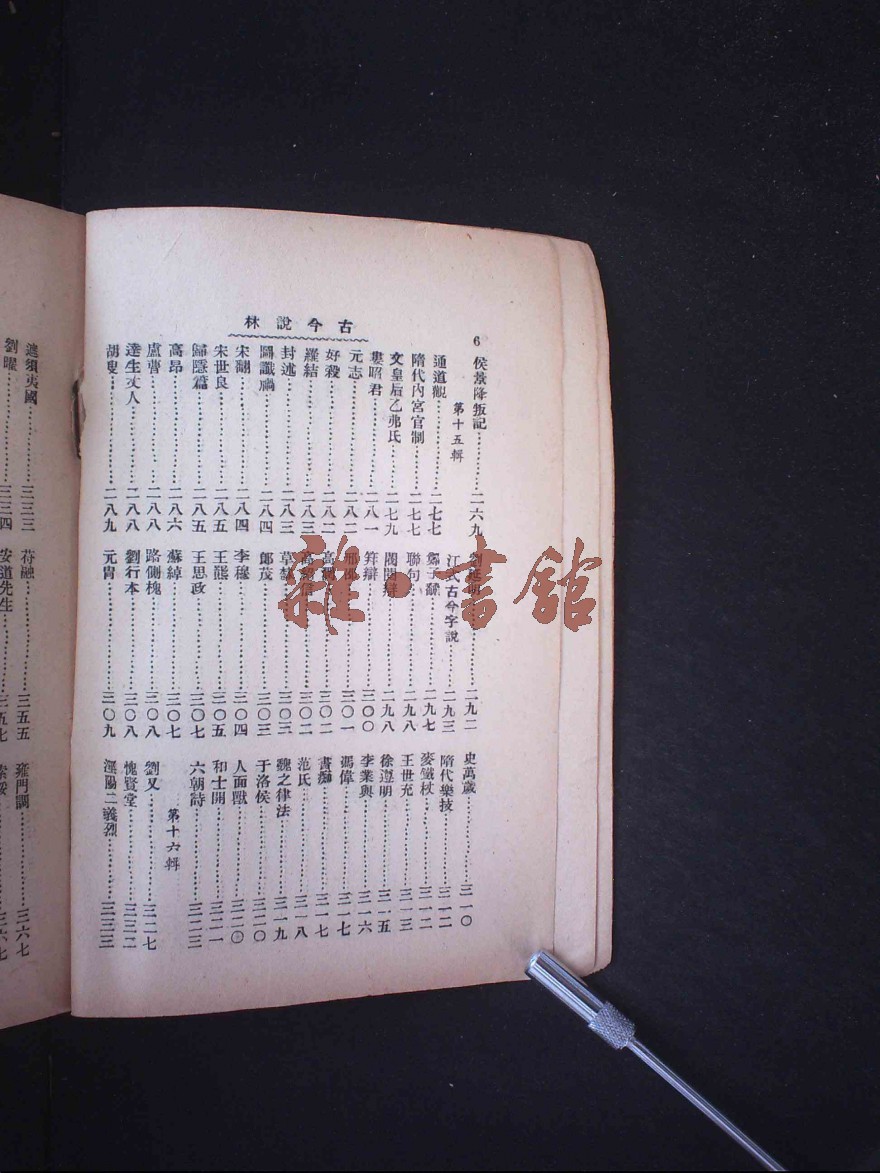 古今說林
6
侯景降叛記⋯⋯二六九
第十五輯
通道觀⋯⋯二七七
隋代內宮官制⋯⋯二七七
文皇后乙弗氏⋯⋯二七九
婁昭君⋯⋯二八一
元志⋯⋯二八二
好殺⋯⋯二八二
羅結⋯⋯二八三
封述⋯⋯二八三
圖讖禍⋯⋯二八四
宋翻⋯⋯二八四
宋世良⋯⋯二八五
歸隱篇⋯⋯二八五
高昂⋯⋯二八六
盧曹⋯⋯二八八
達生丈人⋯⋯二八八
胡叟⋯⋯二八九
⋯⋯二九二
江式古今字說⋯⋯二九三
⋯⋯二九七
聯句⋯⋯二九八
閥閱辯⋯⋯二九八
筓辯⋯⋯三〇〇
⋯⋯三〇一
⋯⋯三〇二
⋯⋯三〇二
⋯⋯三〇三
郎茂⋯⋯三〇三
李穆⋯⋯三〇四
王羆⋯⋯三〇五
王思政⋯⋯三〇七
蘇綽⋯⋯三〇七
路側槐⋯⋯三〇八
劉行本⋯⋯三〇八
元胄⋯⋯三〇九
史萬歲⋯⋯三一〇
隋代樂技⋯⋯三一二
麥鐵杖⋯⋯三一二
王世充⋯⋯三一三
徐遵明⋯⋯三一五
李業興⋯⋯三一六
馮偉⋯⋯三一七
書痴⋯⋯三一七
范氏⋯⋯三一八
魏之律法⋯⋯三一九
于洛侯⋯⋯三二〇
人面獸⋯⋯三二〇
和士開⋯⋯三二一
六朝詩⋯⋯三二三
第十六輯
劉叉⋯⋯三二七
愧賢堂⋯⋯三三二
陽二義烈⋯⋯三三三
須夷國⋯⋯三三三
劉曜⋯⋯三三四
苻融⋯⋯三五五
安道先生⋯⋯三五七
雍門⋯⋯三六七
索綏⋯⋯三六七
雜·書館